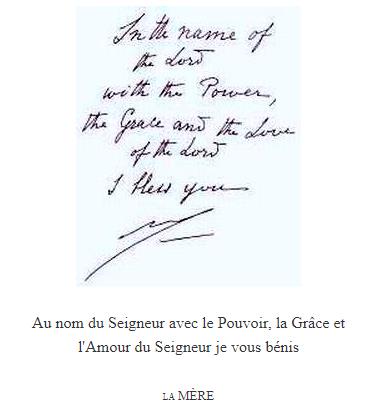 In the name of
the Lord
with the Power,
the Grace and the Love
of the Lord
I bless you
Au nom du Seigneur avec le Pouvoir, la Grâce et
l'Amour du Seigneur je vous bénis
LA MÈRE